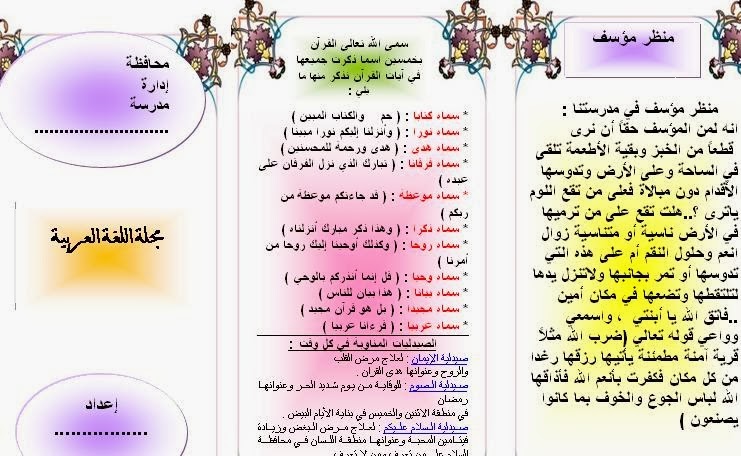 منظر مؤسف
منظر مؤسف في مدرستنا :
انه لمن المؤسف حقًا أن نرى
قطعاً من الخبز وبقية الأطعمة تلقى
في الساحة وعلى الأرض وتدوسها
الأقدام دون مبالاة فعلى من تقع اللوم
ياترى ؟..هلت تقع على من ترميها
في الأرض ناسية أو متناسية زوال
انعم وحلول النقم أم على هذه التي
تدوسها أو تمر بجانبها ولاتنزل يدها
لتلتقطها وتضعها في مكان أمين
..فاتق الله يا أبنتي ، واسمعي
وواعي قوله تعالي (ضرب الله مثلاً
قرية آمنة مطمئنة يأتيها رزقها رغدا
من كل مكان فكفرت بأنعم الله فأذاقها
الله لباس الجوع والخوف بما كانوا
يصنعون )
سمى الله تعالى القرآن
بخمسين اسما ذكرت جميعها
في آيات القرآن نذكر منها ما
يلي :
* سماه كتابا : ( حم والكتاب المبين )
* سماه نورا : ( وأنزلنا إليكم نورا مبينا )
* سماه هدى : ( هدى ورحمة للمحسنين )
* سماه فرقانا : ( تبارك الذي نزل الفرقان على
عبده )
* سماه موعظة : ( قد جاءتكم موعظة من
ربكم )
* سماه ذكرا : ( وهذا ذكر مبارك أنزلناه )
* سماه روحا : ( وكذلك أوحينا إليك روحا من
أمرنا )
* سماه وحيا : ( قل إنما أنذركم بالوحي )
* سماه بيانا : ( هذا بيان للناس )
* سماه مجيدا : ( بل هو قرآن مجيد )
* سماه عربيا : ( قرءانا عربيا )
الصيدليات المناوبة في كل وقت :
صيدلية الإيمان : لعلاج مرض القلب
والروح وعنوانها هدى القرآن .
صيدلية الصوم : للوقاية من يوم شديد الحر وعنوانها
رمضان
في منطقة الاثنين والخميس في بناية الأيام البيض .
صيدلية السلام عليكم : لعلاج مرض البغض وزيادة
فيتامين المحبة وعنوانها منطقة اللسان في محافظة
السلام على من تعرف ومن لا تعرف
محافظة
إدارة
مدرسة
............................
مجلة اللغة العربية
إعداد
........................